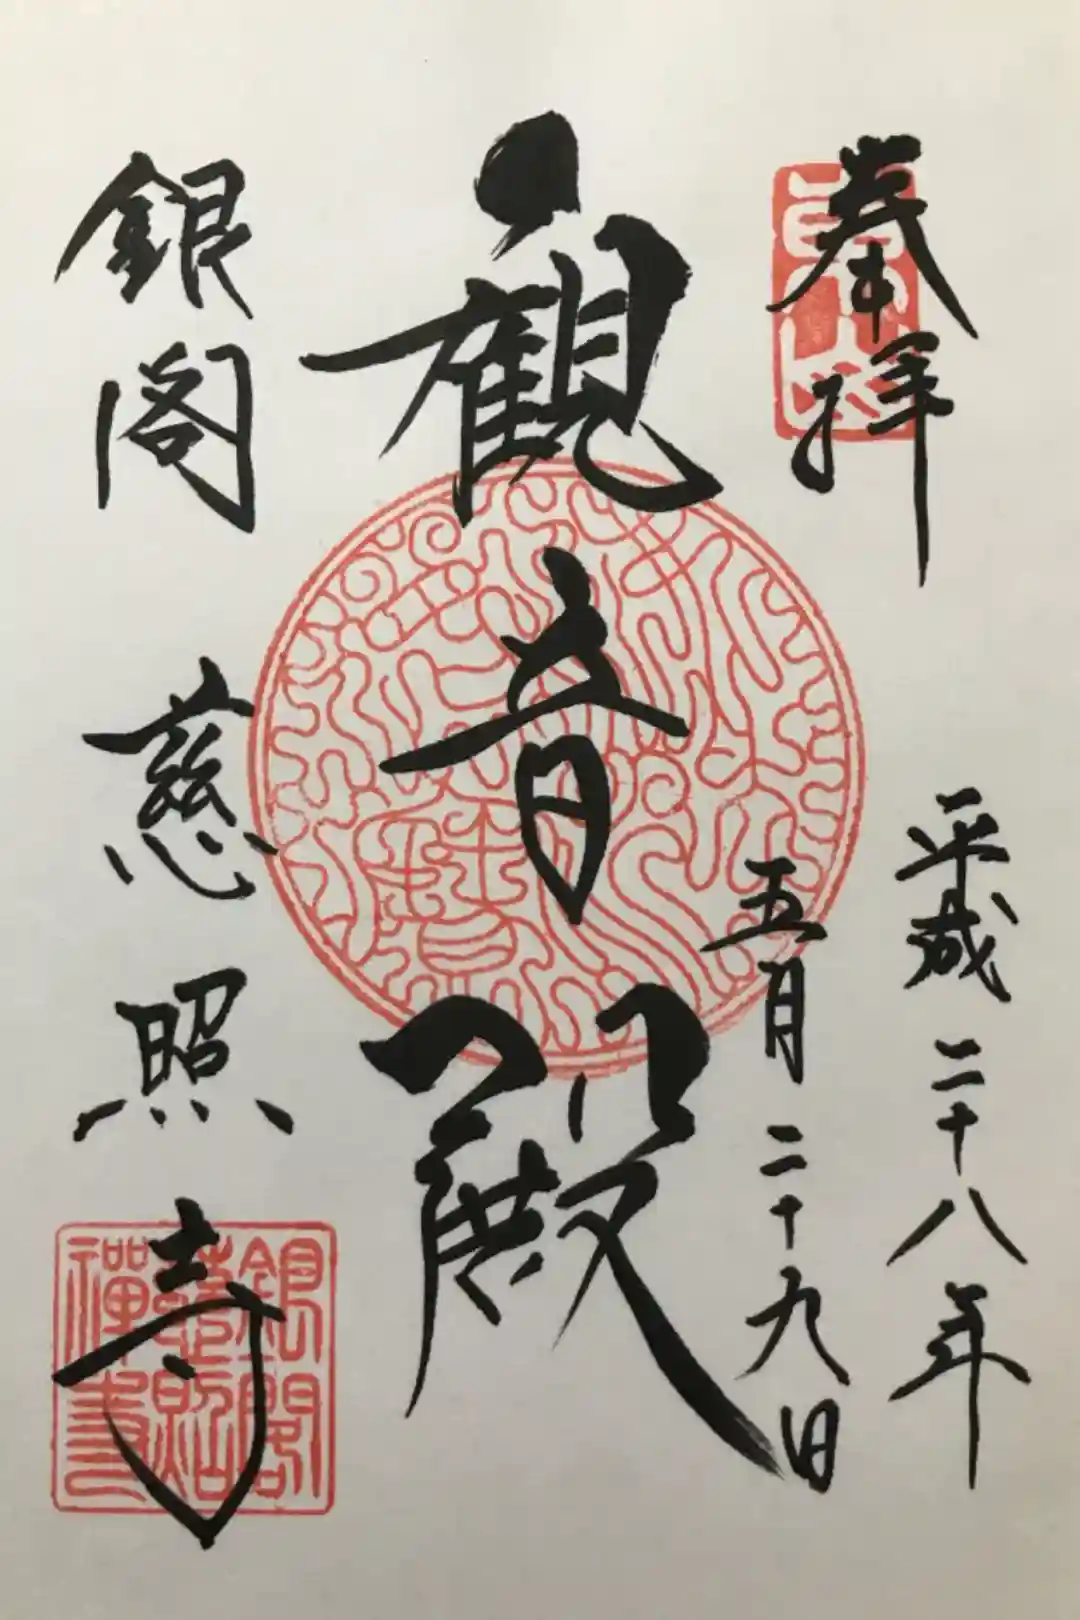 奉拝
平成二十八年
五月二十九日
観音殿
銀閣 慈照寺
東山
銀閣
慈照
禅寺